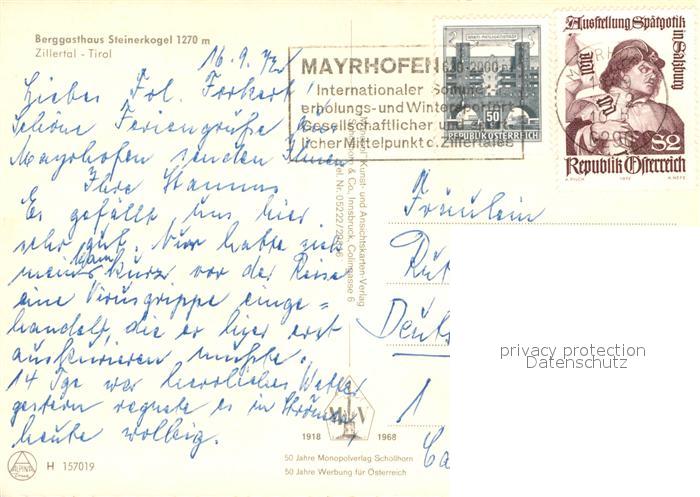 Berggasthaus Steinerkogel 1270 m
Zillertal - Tirol
16. 9. 72
Liebes Frl. Forkert!
Schöne Feriengrüße aus
Mayrhofen senden Ihnen
Ihre
Es gefällt uns hier
sehr gut. Nur hatte sich
mein Mann kurz vor der Reise
eine Virusgrippe einge=
handelt, die er hier erst
auskurieren mußte.
14 Tge war herrliches Wetter
gestern regnete es in Strömen
heute wolkig.
ALPINA
Druck
H 157019
MAYRHOFEN 630-2000 m
Internationaler Sommer
erholungs- und Wintersportort
Gesellschaftlicher und
licher Mittelpunkt d. Zillertales
50
REPUBLIK ÖSTERREICH
Ausstellung Spätgotik
in Salzburg
S2
Republik Österreich
A. PILCH 1972 A. NEFE
Kunst- und Ansichtskarten-Verlag
& Co., Innsbruck, Colingasse 6
Tel. Nr. 05222/
Fräulein
Deuts
1
MSV
1918 1968
50 Jahre Monopolverlag Schöllhorn
50 Jahre Werbung für Österreich
privacy protection
Datenschutz